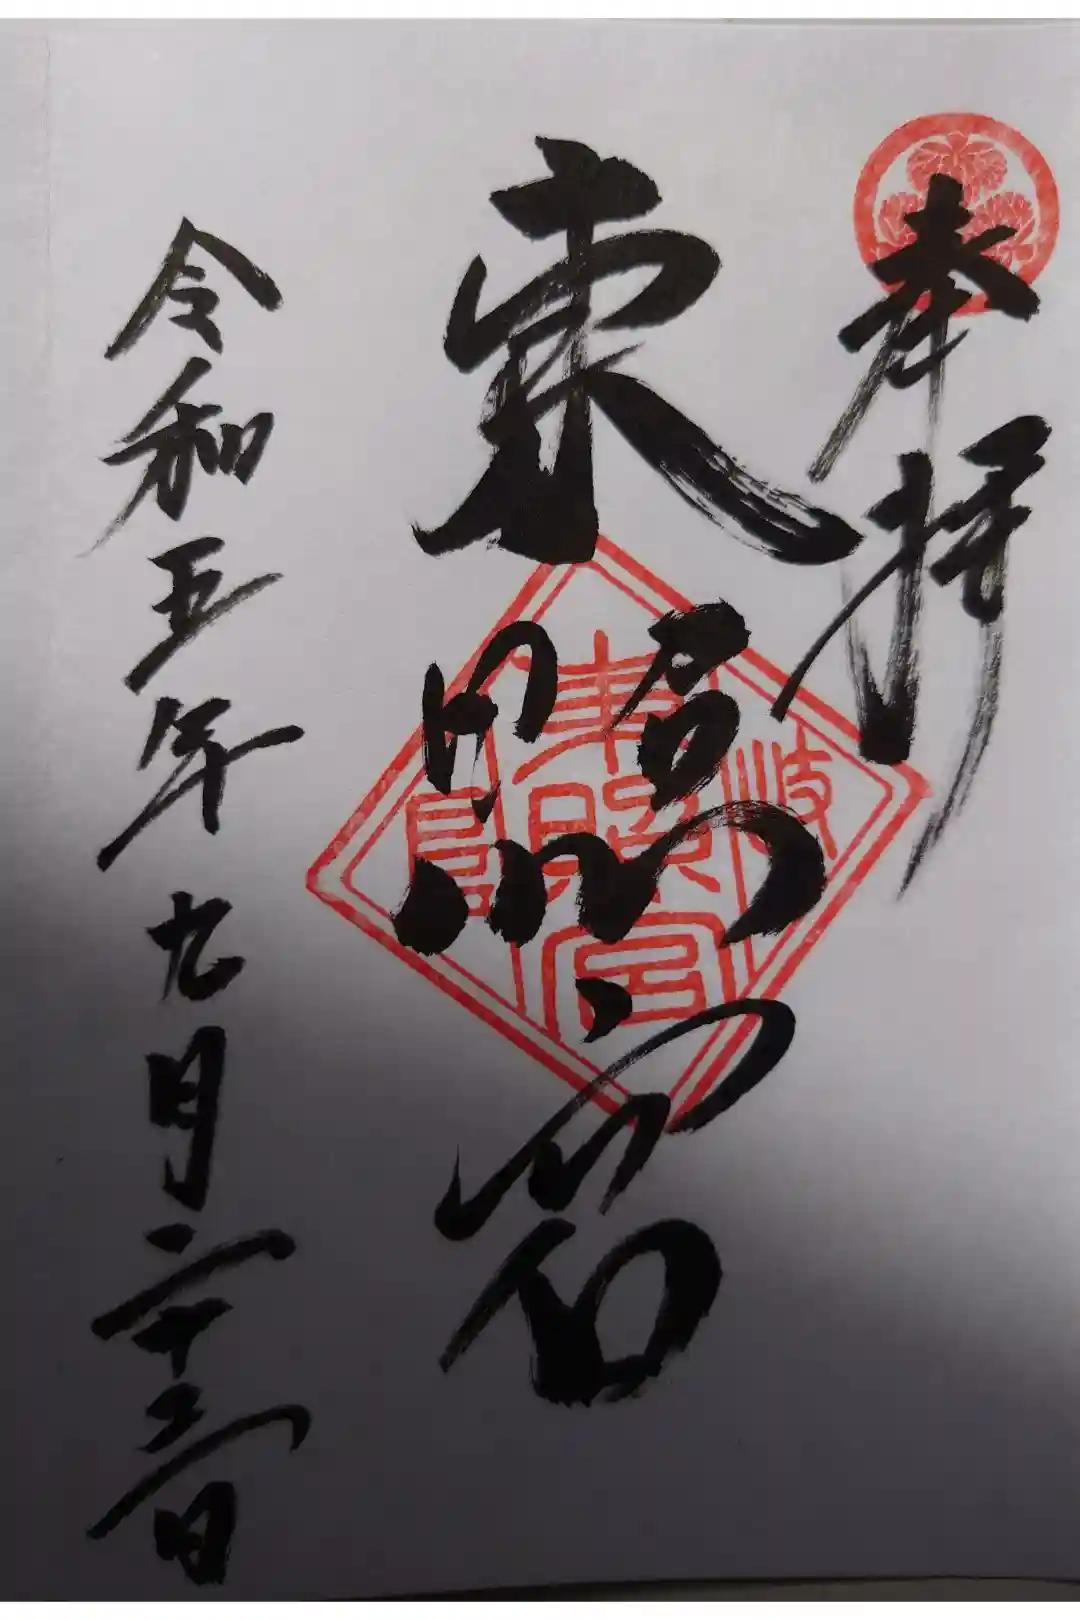 奉拝
東照宮
岐
東照宮
令和五年九月二十三日